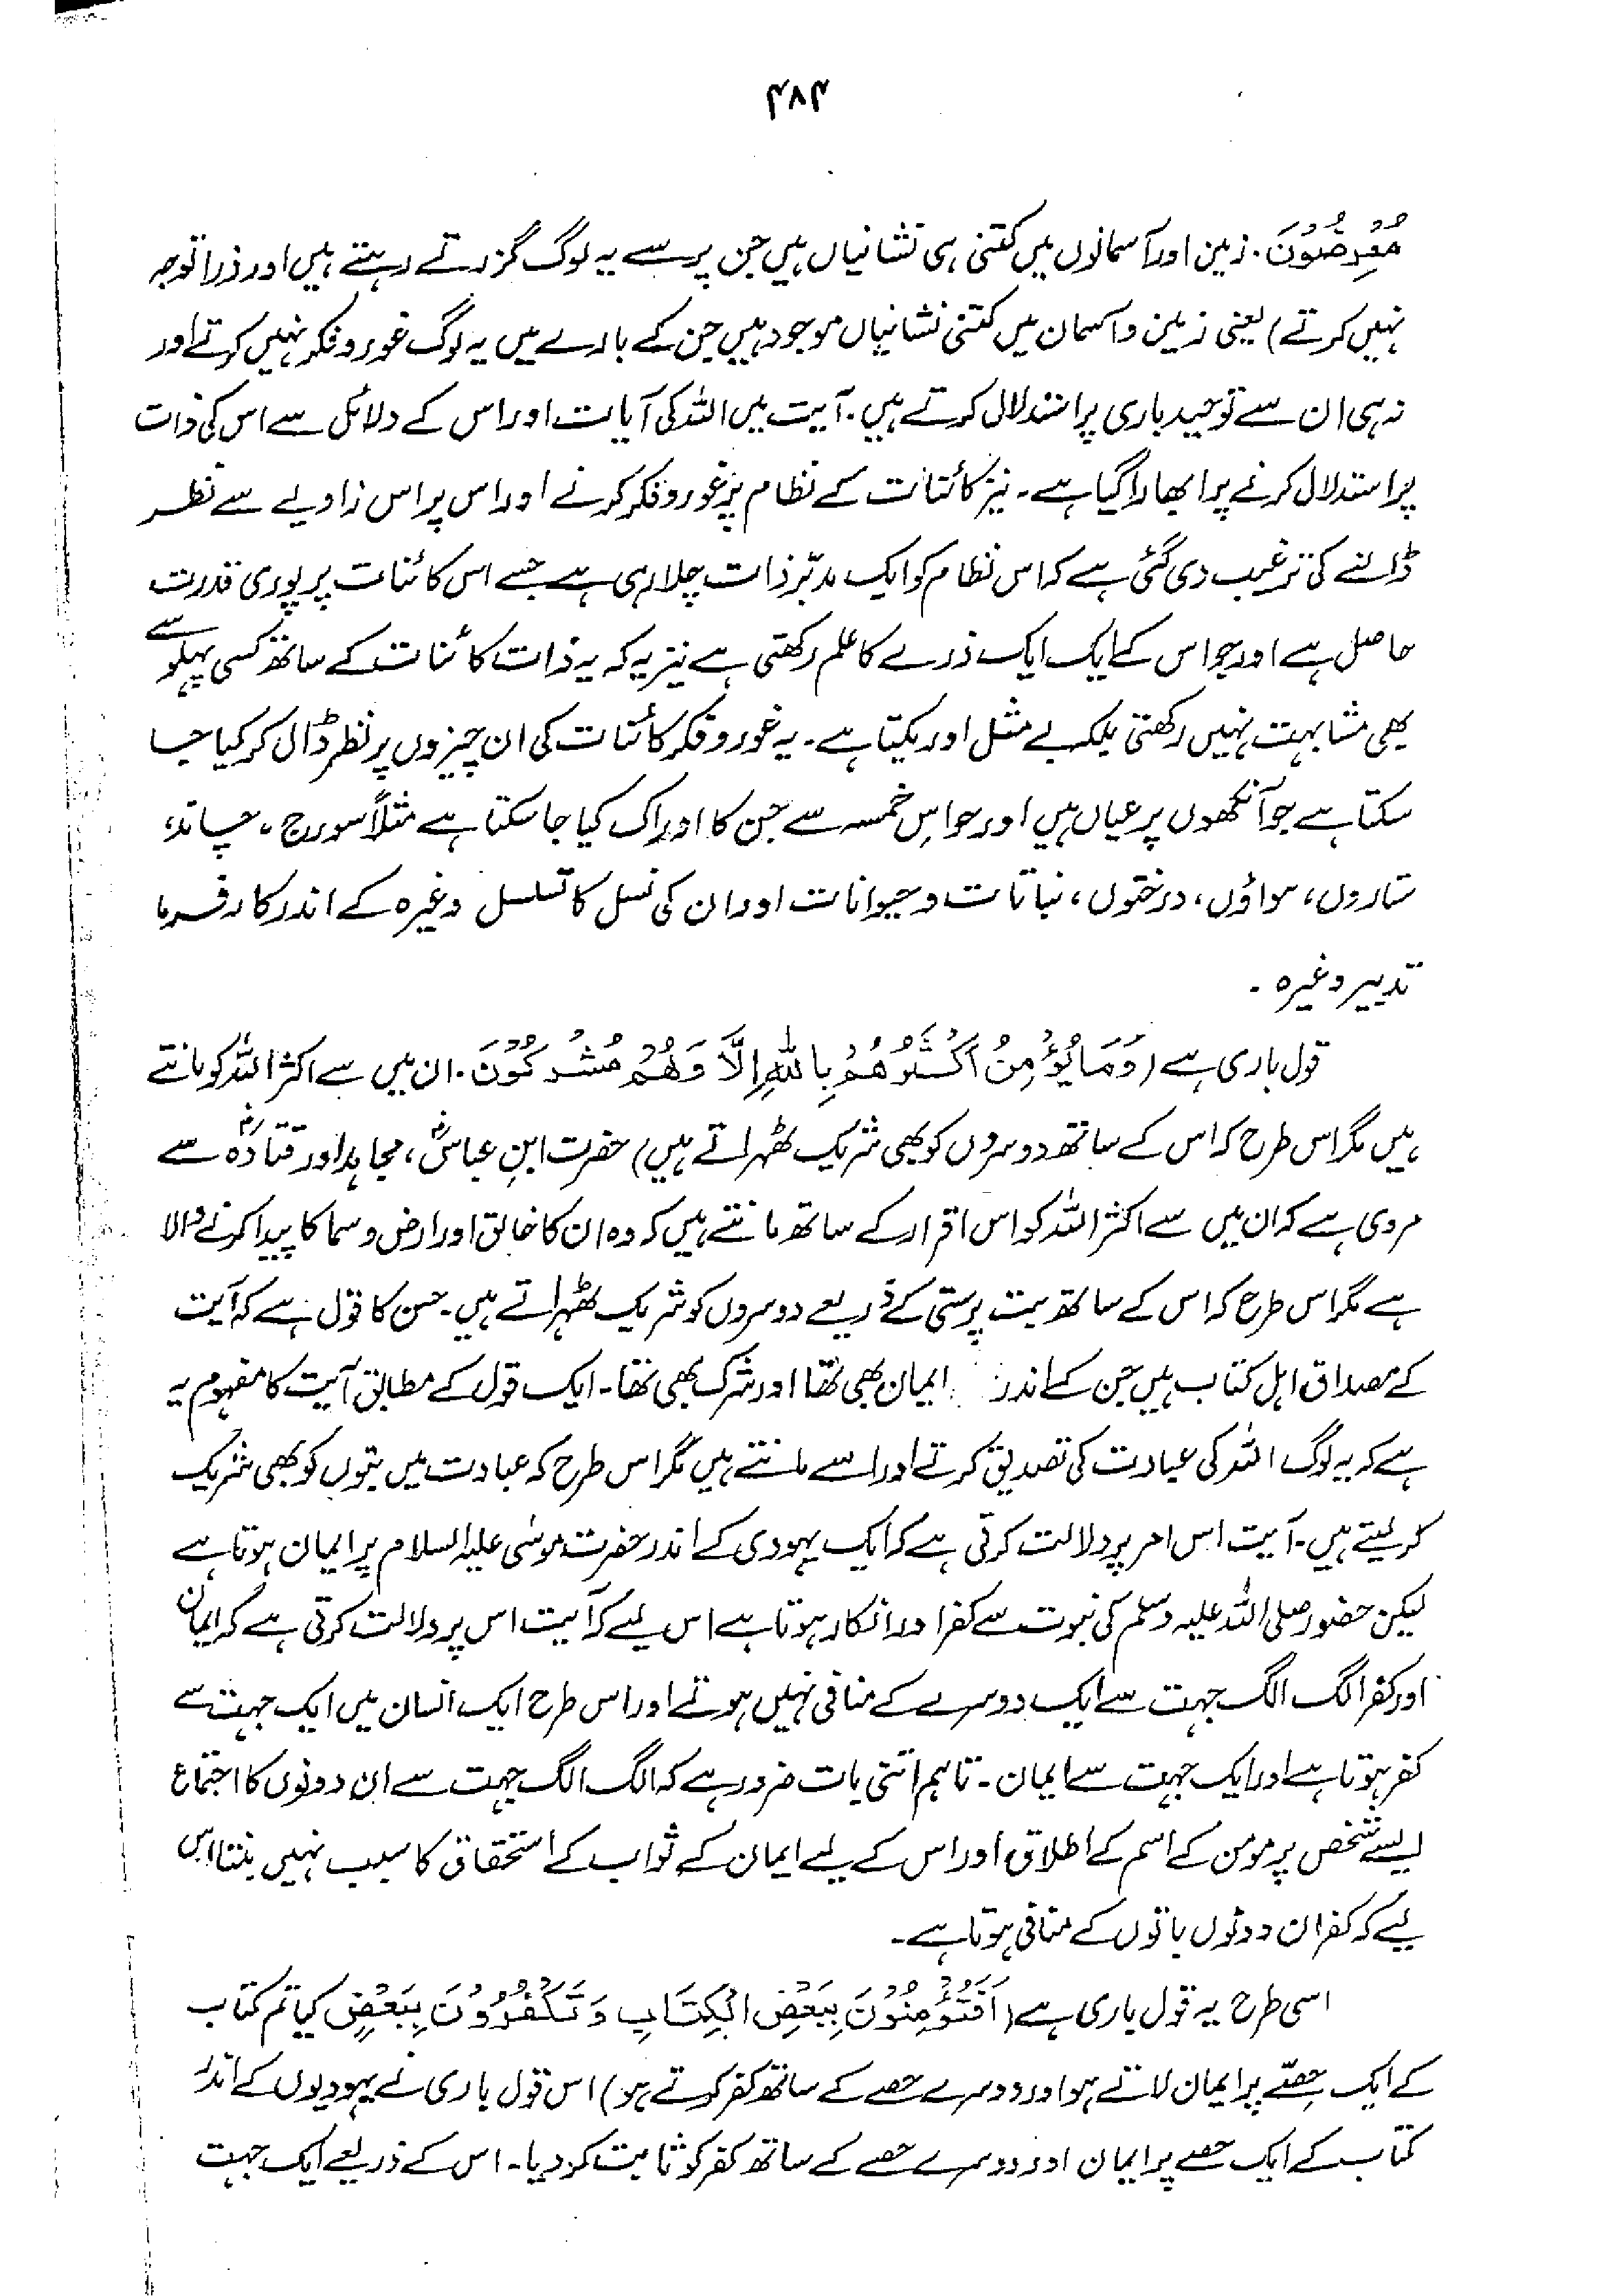 ۴۸۴
مُعْرِضُوْنَ۔ زمین اور آسمانوں میں کتنی ہی نشانیاں ہیں جن پر سے یہ لوگ گزرتے رہتے ہیں اور ذرا توجہ
نہیں کرتے) یعنی زمین و آسمان میں کتنی نشانیاں موجود ہیں جن کے بارے میں یہ لوگ غور و فکر نہیں کرتے اور
نہ ہی ان سے توحید باری پر استدلال کرتے ہیں۔ آیت میں اللہ کی آیات اور اس کے دلائل سے اس کی ذات
پر استدلال کرنے پر ابھارا گیا ہے۔ نیز کائنات کے نظام پر غور و فکر کرنے اور اس پر اس زاویے سے نظر
ڈالنے کی ترغیب دی گئی ہے کہ اس نظام کو ایک مدبّر ذات چلا رہی ہے جسے اس کائنات پر پوری قدرت
حاصل ہے اور جو اس کے ایک ایک ذرے کا علم رکھتی ہے نیز یہ کہ یہ ذات کائنات کے ساتھ کسی پہلو سے
بھی مشابہت نہیں رکھتی بلکہ بے مثل اور یکتا ہے۔ یہ غور و فکر کائنات کی ان چیزوں پر نظر ڈال کر کیا جا
سکتا ہے جو آنکھوں پر عیاں ہیں اور حواسِ خمسہ سے جن کا ادراک کیا جا سکتا ہے مثلاً سورج، چاند،
ستاروں، ہواؤں، درختوں، نباتات و حیوانات اور ان کی نسل کا تسلسل وغیرہ کے اندر کار فرما
تدبیر وغیرہ۔
قول باری ہے (وَمَا يُؤْمِنُ اَكْثَرُهُمْ بِاللّٰهِ اِلَّا وَهُمْ مُشْرِكُوْنَ۔ ان میں سے اکثر اللہ کو مانتے
ہیں مگر اس طرح کہ اس کے ساتھ دوسروں کو بھی شریک ٹھہراتے ہیں) حضرت ابنِ عباسؓ، مجاہد اور قتادہؓ سے
مروی ہے کہ ان میں سے اکثر اللہ کو اس اقرار کے ساتھ مانتے ہیں کہ وہ ان کا خالق اور ارض و سما کا پیدا کرنے والا
ہے مگر اس طرح کہ اس کے ساتھ بت پرستی کے ذریعے دوسروں کو شریک ٹھہراتے ہیں۔ حسن کا قول ہے کہ آیت
کے مصداق اہل کتاب ہیں جن کے اندر ایمان بھی تھا اور شرک بھی تھا۔ ایک قول کے مطابق آیت کا مفہوم یہ
ہے کہ یہ لوگ اللہ کی عبادت کی تصدیق کرتے اور اسے مانتے ہیں مگر اس طرح کہ عبادت میں بتوں کو بھی شریک
کر لیتے ہیں۔ آیت اس امر پر دلالت کرتی ہے کہ ایک یہودی کے اندر حضرت موسٰی علیہ السلام پر ایمان ہوتا ہے
لیکن حضور صلی اللہ علیہ وسلم کی نبوت سے کفر اور انکار ہوتا ہے اس لیے کہ آیت اس پر دلالت کرتی ہے کہ ایمان
اور کفر الگ الگ جہت سے ایک دوسرے کے منافی نہیں ہوتے اور اس طرح ایک انسان میں ایک جہت سے
کفر ہوتا ہے اور ایک جہت سے ایمان۔ تاہم اتنی بات ضرور ہے کہ الگ الگ جہت سے ان دونوں کا اجتماع
ایسے شخص پر مومن کے اسم کے اطلاق اور اس کے لیے ایمان کے ثواب کے استحقاق کا سبب نہیں بنتا اس
لیے کہ کفر ان دونوں باتوں کے منافی ہوتا ہے۔
اسی طرح یہ قول باری ہے (اَفَتُؤْمِنُوْنَ بِبَعْضِ الْكِتَابِ وَتَكْفُرُوْنَ بِبَعْضٍ کیا تم کتاب
کے ایک حصّے پر ایمان لاتے ہو اور دوسرے حصے کے ساتھ کفر کرتے ہو) اس قول باری نے یہودیوں کے اندر
کتاب کے ایک حصے پر ایمان اور دوسرے حصے کے ساتھ کفر کو ثابت کر دیا۔ اس کے ذریعے ایک جہت